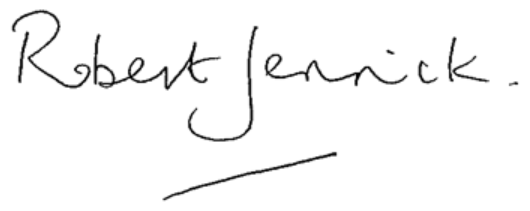 Robert Jenrick.